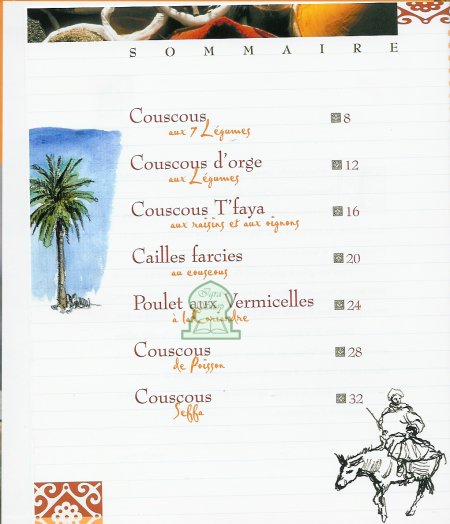 SOMMAIRE
Couscous 8
aux 7 Légumes
Couscous d'orge 12
aux Légumes
Couscous T'faya 16
aux raisins et aux oignons
Cailles farcies 20
au couscous
Poulet aux Vermicelles 24
à la Coriandre
Couscous 28
de Poisson
Couscous 32
Seffa
Iqra